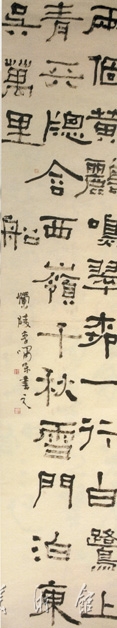 兩個黃鸝鳴翠柳一行白鷺上
青天牕含西嶺千秋雪門泊東
吳萬里船
書之